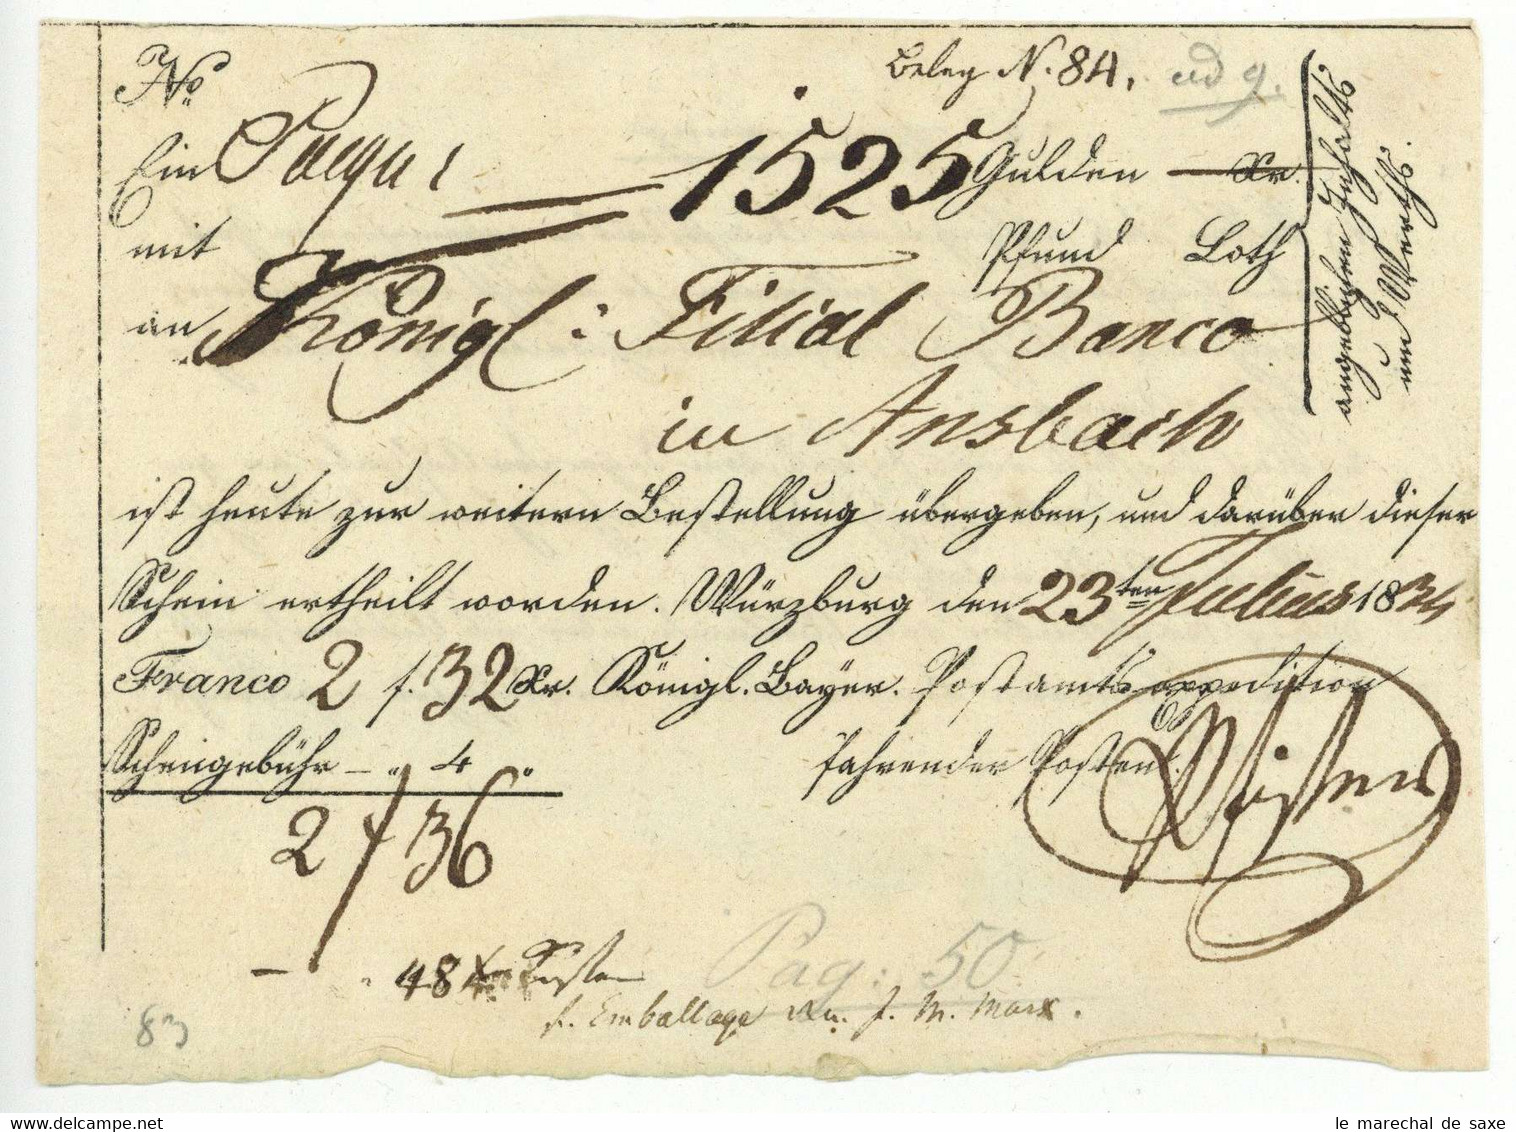 Beleg N. 84. ad 9.
No
Ein Paquet 1525 Gulden Xr.
mit Pfund Loth
angeblichen Inhalts
und Werths.
an Königl: Filial Banco
in Ansbach
ist heute zur weitern Bestellung übergeben, und darüber dieser
Schein ertheilt worden. Würzburg den 23ten Julius 1834
Franco 2 f. 32 Xr. Königl. Bayer. Postamts expedition
Scheingebühr – „ 4 „ fahrender Posten.
2 f 36
– 48 x
f. Emballage J. M. Marx.
Pag: 50
83
le marechal de saxe